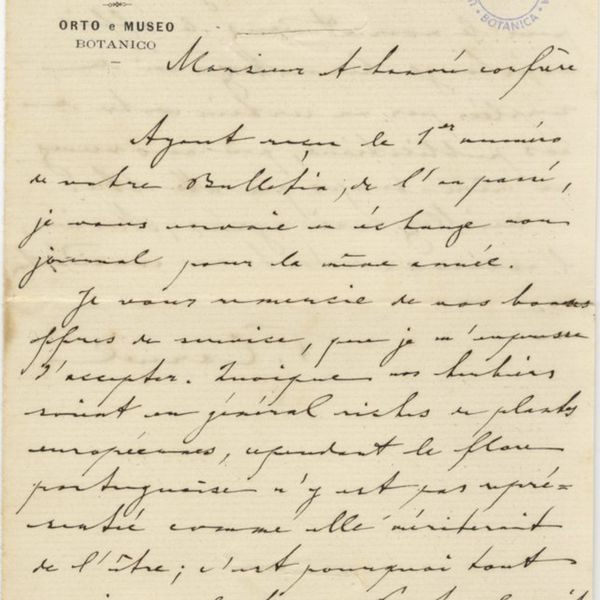 ORTO e MUSEO
BOTANICO
BOTANICA
Monsieur & honoré confrère
Ayant reçu le 1er numéro
de votre Bulletin, de l'an passé,
je vous envoie en échange mon
journal pour la même année.
Je vous remercie de vos bonnes
offres de service, que je m'empresse
d'accepter. Quoique nos herbiers
soient en général riches de plantes
européennes, cependant la flore
portugaise n'y est pas repré=
sentée comme elle mériterait
de l'être; c'est pourquoi tout